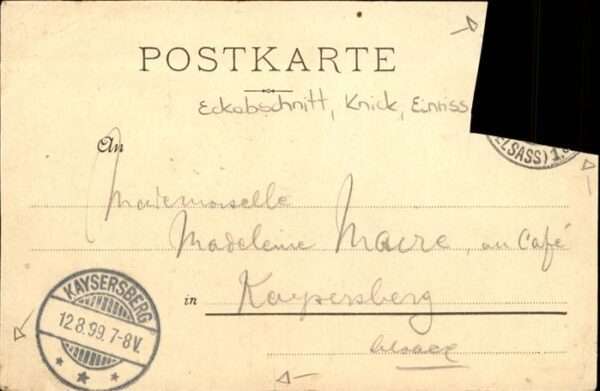 POSTKARTE
Eckabschnitt, Knick, Einriss
An
Mademoiselle
Madeleine Maire, au Café
in Kaysersberg
Alsace
KAYSERSBERG
12.8.99.7-8V.
(ELSASS)